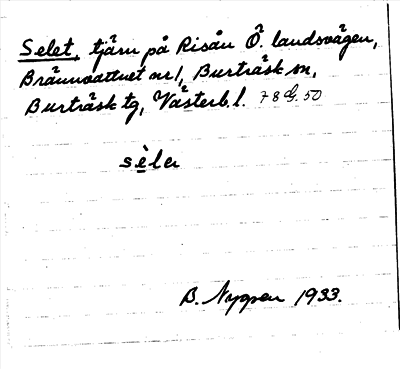 Selet, tjärn på Risån Ö. landsvägen,
Brännvattnet nr 1, Burträsk sn,
Burträsk tg, Västerb. l. 78 G. 50
sèlą
B. Nygren 1933.